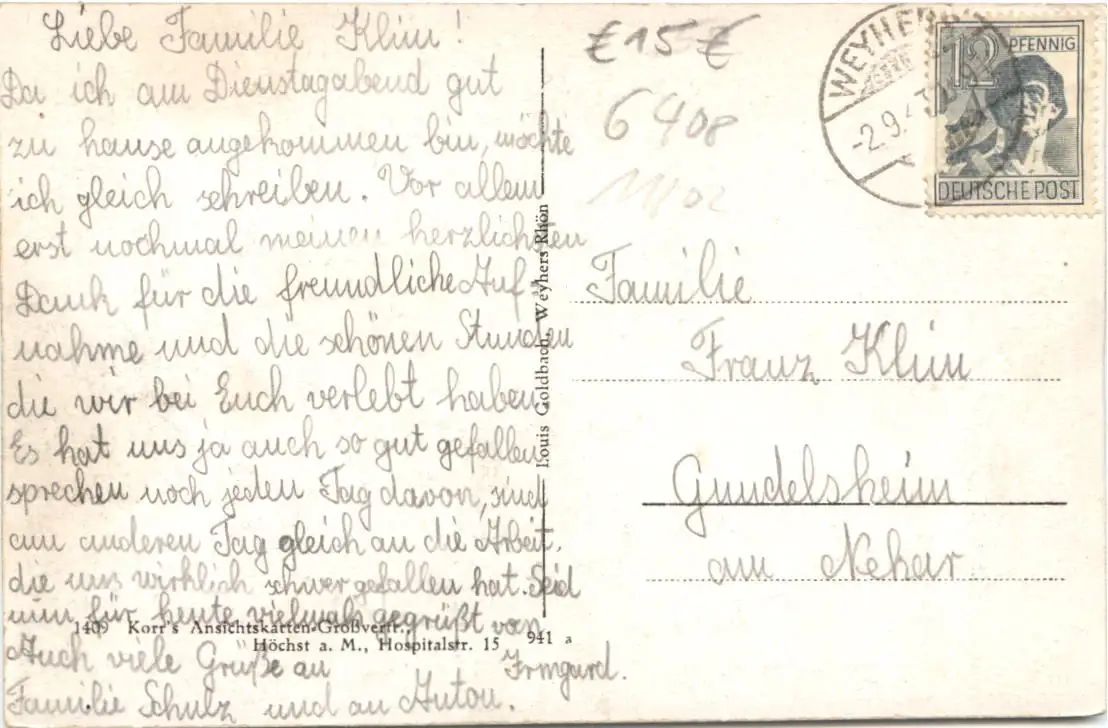 Liebe Familie Klim!
Da ich am Dienstagabend gut
zu hause angekommen bin, möchte
ich gleich schreiben. Vor allem
erst nochmal meinen herzlichsten
Dank für die freundliche Auf-
nahme und die schönen Stunden
die wir bei Euch verlebt haben.
Es hat uns ja auch so gut gefallen
sprechen noch jeden Tag davon, sind
am anderen Tag gleich an die Arbeit.
die uns wirklich schwer gefallen hat. Seid
nun für heute vielmals gegrüßt von
Irmgard.
Auch viele Grüße an
Familie Schulz und an Anton.
1409 Korr's Ansichtskarten-Großvertr.,
Höchst a. M., Hospitalstr. 15
941 a
Louis Goldbach, Weyhers Rhön
€ 15 €
6408
WEYHERS
-2.9.4
12 PFENNIG
DEUTSCHE POST
Familie
Franz Klim
Gundelsheim
am Nekar